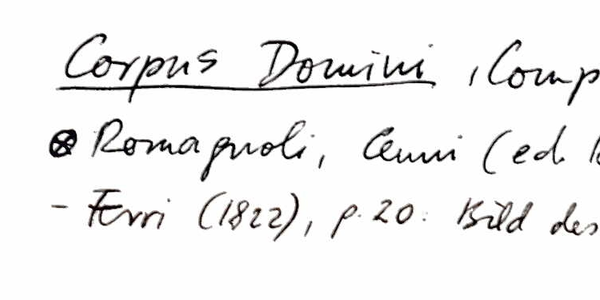 Corpus Domini, Comp
Romagnoli, Cenni (ed.
- Ferri (1822), p. 20: Bild des